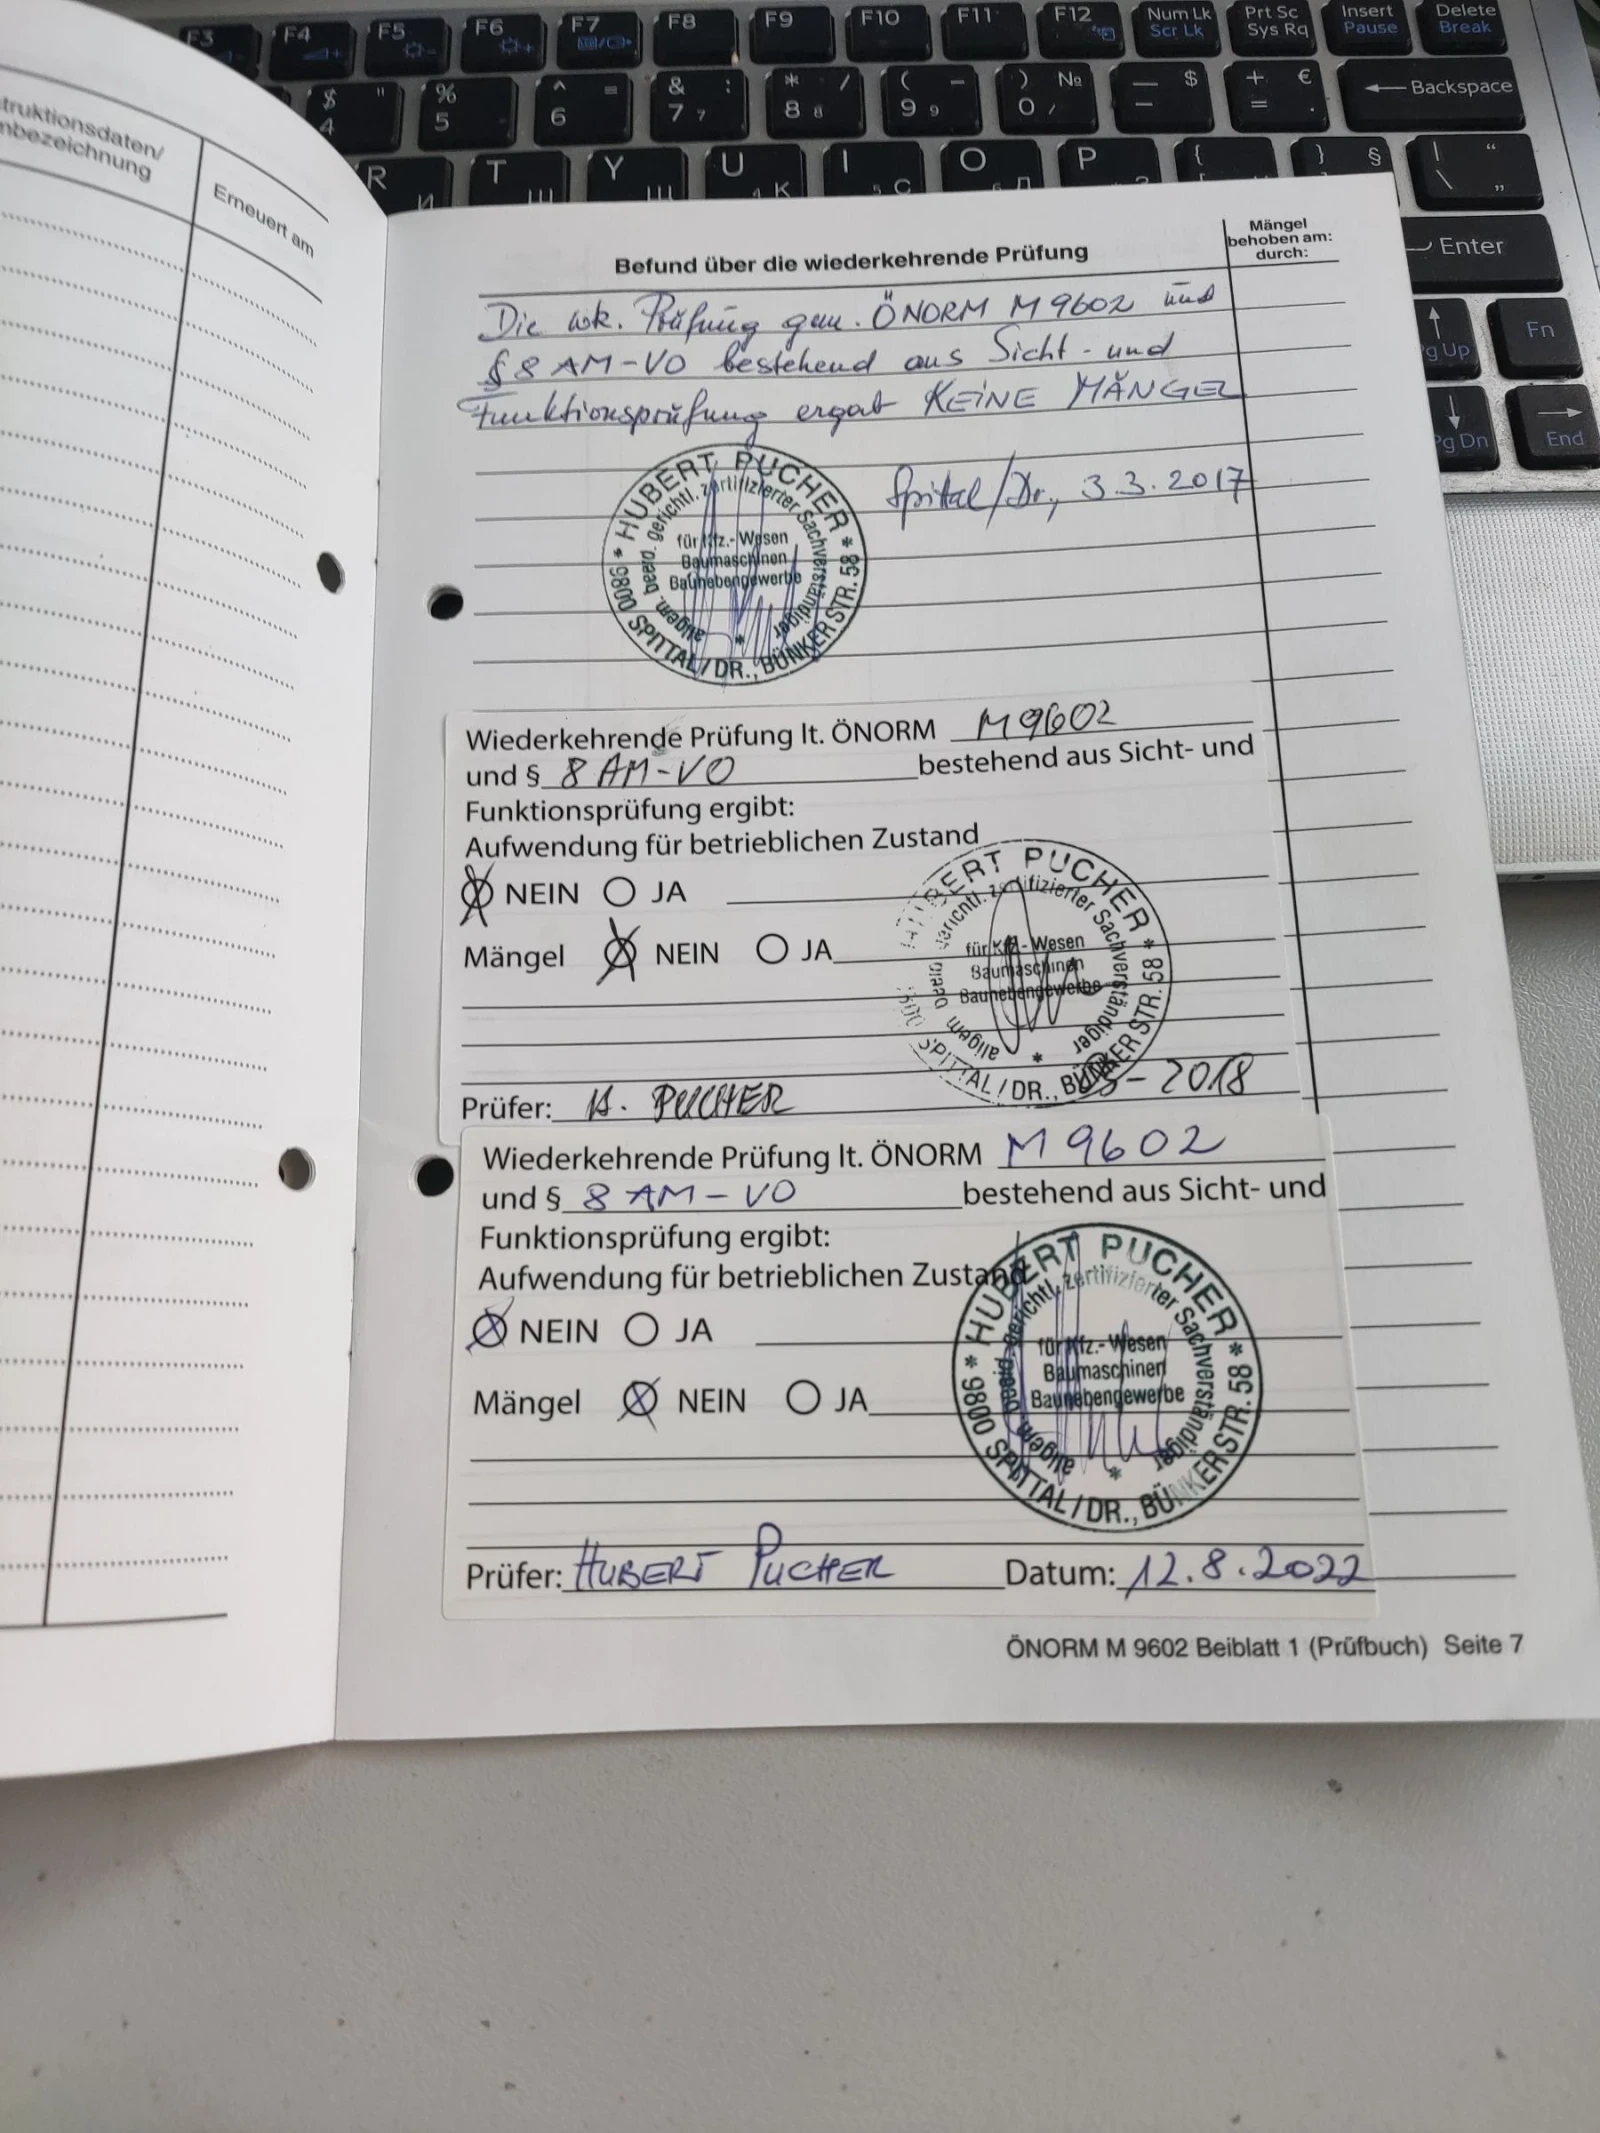 F3 F4 F5 F6 F7 F8 F9 F10 F11 F12 Num Lk Scr Lk Prt Sc Sys Rq Insert Pause Delete Break
$ " 4 % 5 ^ = 6 & : 7 7 * / 8 8 ( - 9 9 ) № 0 / — $ - + € = . Backspace
R И T Ш Y Щ U К I С O Д P { } § | “ \ „
Enter
Pg Up Fn
Pg Dn End
truktionsdaten/
nbezeichnung
Erneuert am
Befund über die wiederkehrende Prüfung
Mängel
behoben am:
durch:
Die wk. Prüfung gem. ÖNORM M 9602 und
§ 8 AM-VO bestehend aus Sicht- und
Funktionsprüfung ergab KEINE MÄNGEL
Spittal/Dr., 3.3.2017
* HUBERT PUCHER *
9800 SPITTAL/DR., BÜNKERSTR. 58
allgem. beeid. gerichtl. zertifizierter Sachverständiger
für Kfz.-Wesen
Baumaschinen
Baunebengewerbe
Wiederkehrende Prüfung lt. ÖNORM M9602
und § 8 AM-VO bestehend aus Sicht- und
Funktionsprüfung ergibt:
Aufwendung für betrieblichen Zustand
NEIN JA
Mängel NEIN JA
HUBERT PUCHER *
SPITTAL/DR., BÜNKERSTR. 58
allgem. beeid. gerichtl. zertifizierter Sachverständiger
für Kfz.-Wesen
Baumaschinen
Baunebengewerbe
Prüfer: H. PUCHER - 2018
Wiederkehrende Prüfung lt. ÖNORM M 9602
und § 8 AM-VO bestehend aus Sicht- und
Funktionsprüfung ergibt:
Aufwendung für betrieblichen Zustand
NEIN JA
Mängel NEIN JA
* HUBERT PUCHER *
9800 SPITTAL/DR., BÜNKERSTR. 58
allgem. beeid. gerichtl. zertifizierter Sachverständiger
für Kfz.-Wesen
Baumaschinen
Baunebengewerbe
Prüfer: HUBERT PUCHER Datum: 12.8.2022
ÖNORM M 9602 Beiblatt 1 (Prüfbuch) Seite 7